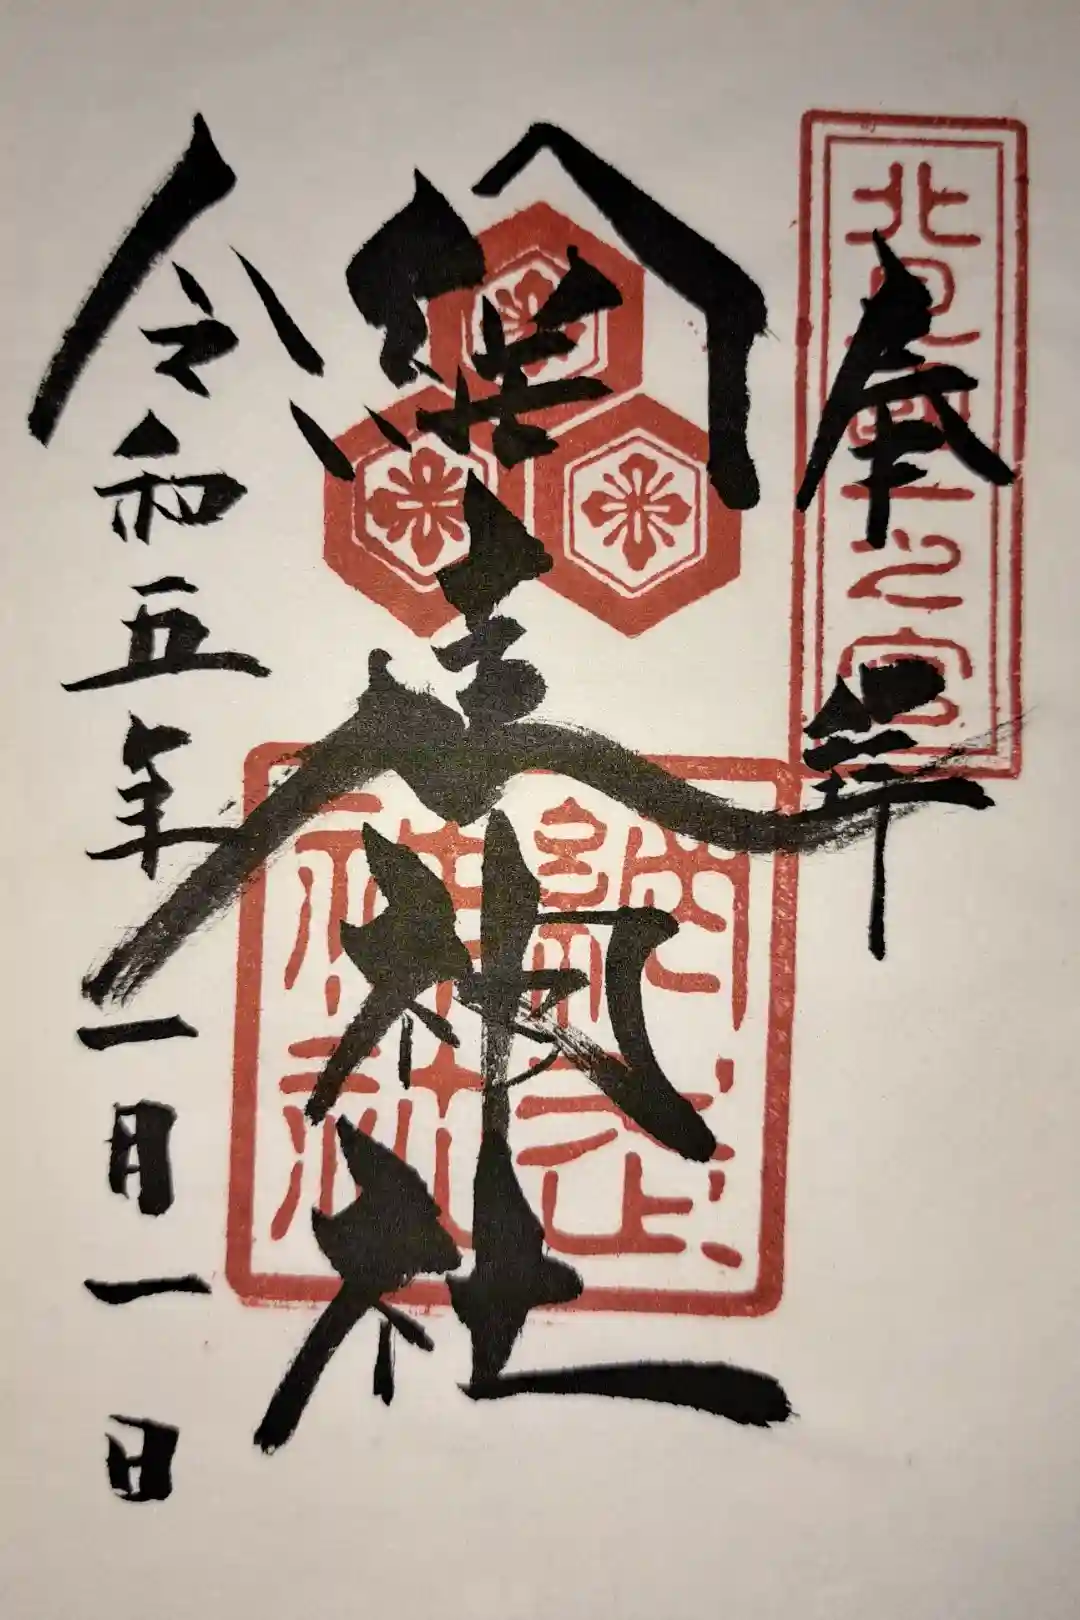 北見國一之宮
奉拝
網走神社
網走
神社
令和五年一月一日